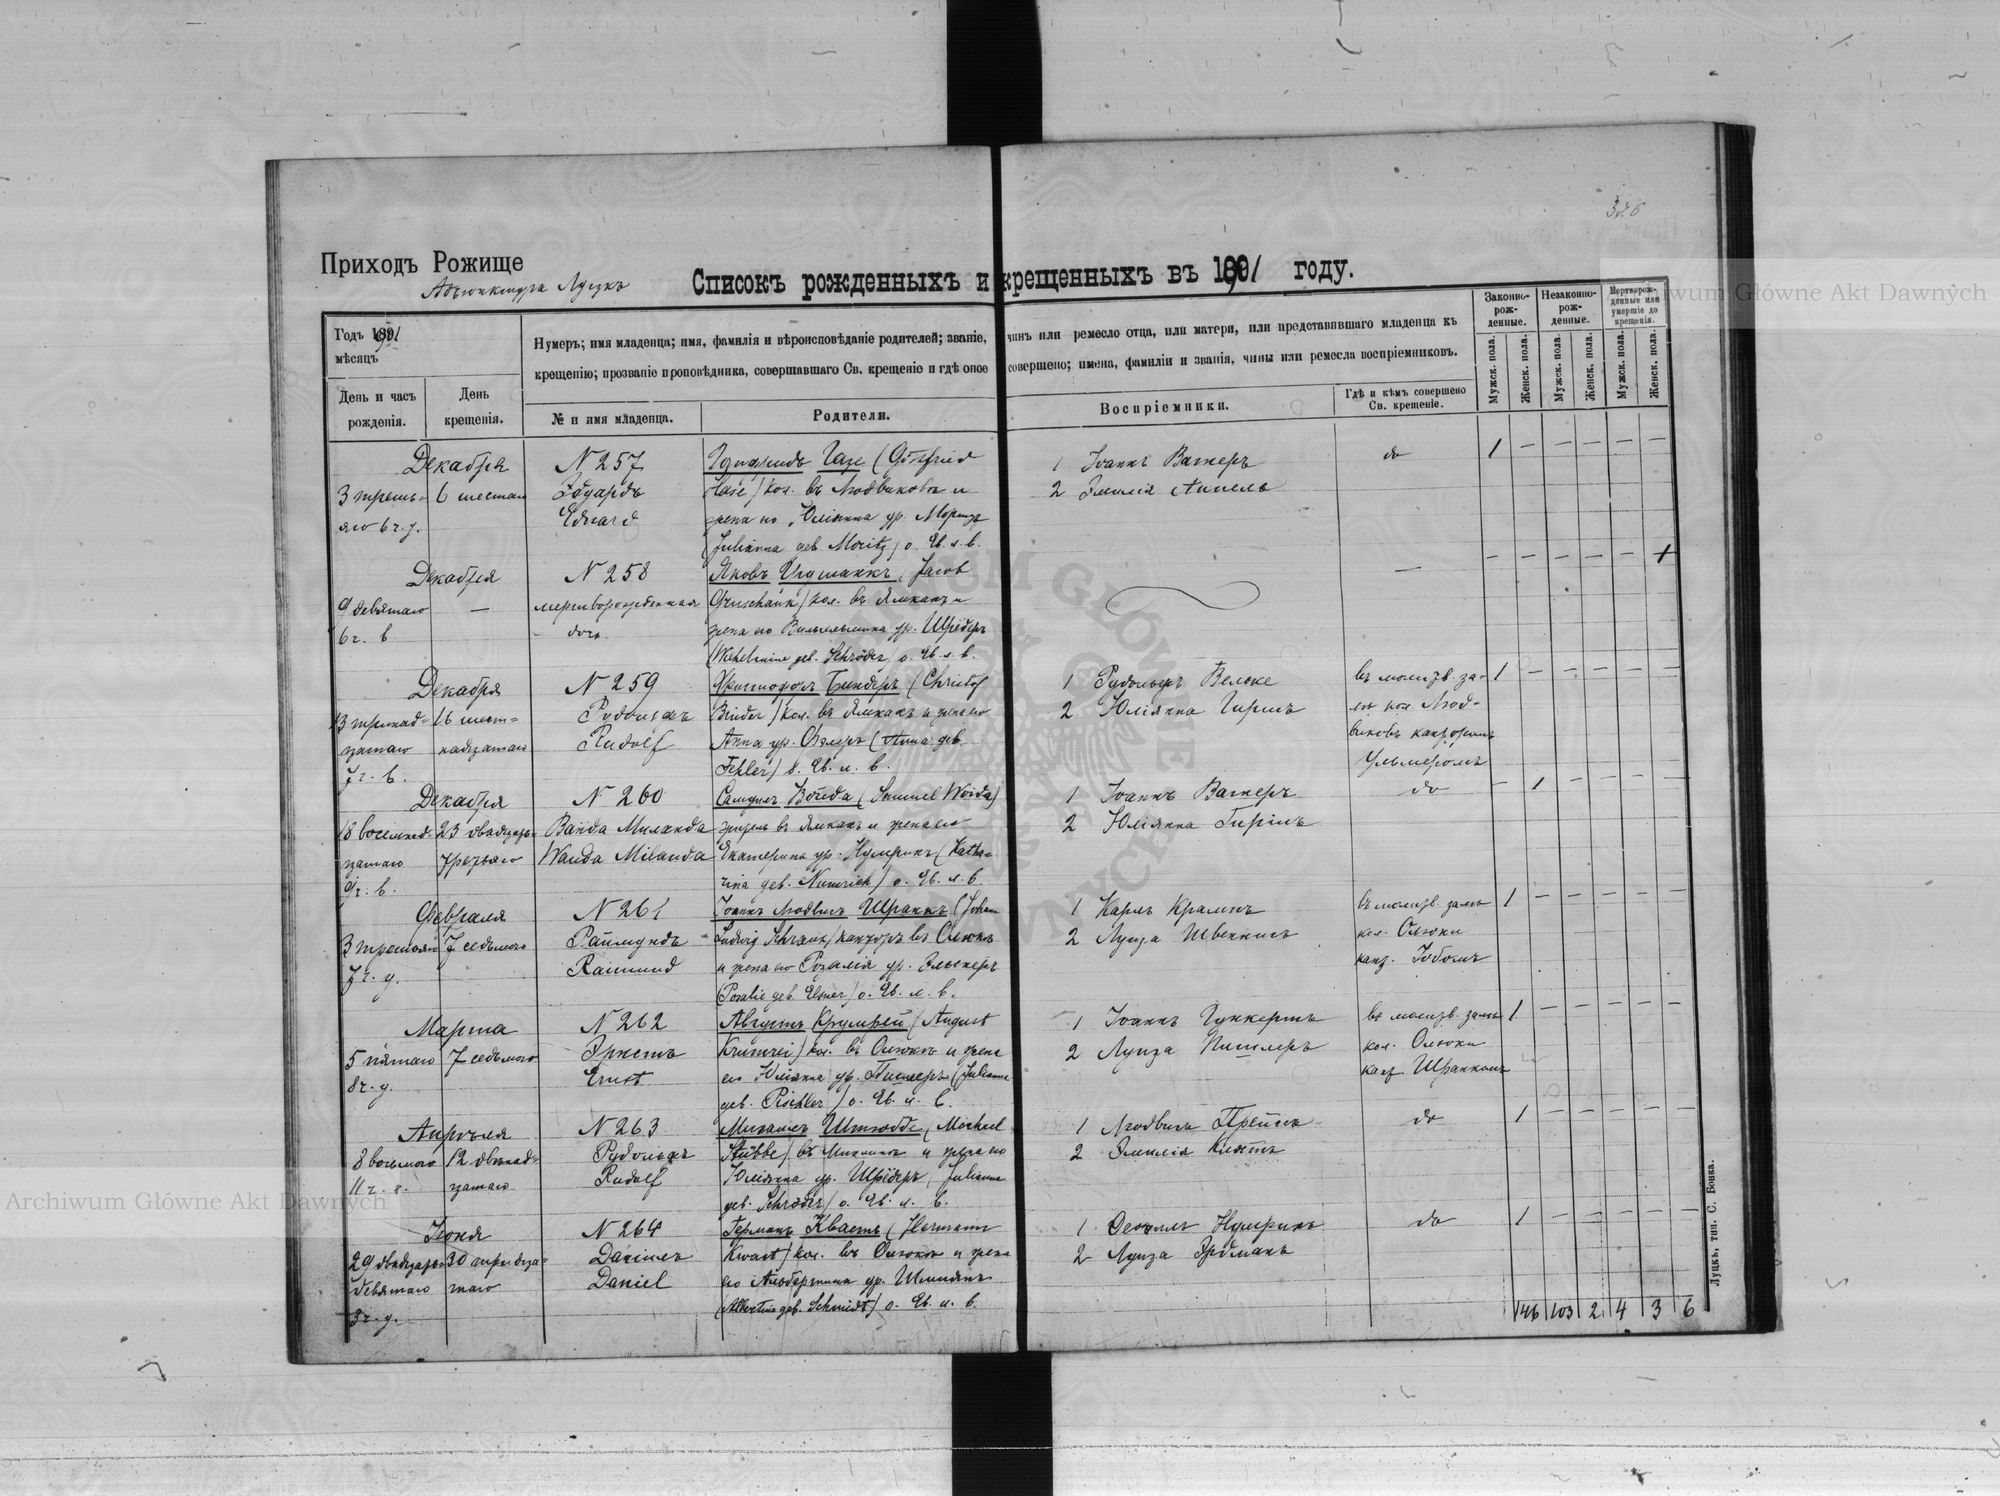 326
Приходъ Рожище
Адъюнктура Луцкъ
Списокъ рожденныхъ и крещенныхъ въ 1891 году.
Годъ 1891
мѣсяцъ
День и часъ рожденія.
День крещенія.
Нумеръ; имя младенца; имя, фамилія и вѣроисповѣданіе родителей; званіе, чинъ или ремесло отца, или матери, или представявшаго младенца къ
крещенію; прозваніе проповѣдника, совершавшаго Св. крещеніе и гдѣ оное совершено; имена, фамиліи и званія, чины или ремесла воспріемниковъ.
№ и имя младенца.
Родители.
Воспріемники.
Гдѣ и кѣмъ совершено Св. крещеніе.
Законно-рож-денные.
Незаконно-рож-денные.
Мертворож-денные или умершіе до крещенія.
Мужск. пола.
Женск. пола.
Мужск. пола.
Женск. пола.
Мужск. пола.
Женск. пола.
Декабря
3 треть-
яго 6 ч. у.
6 шестаго
N 257
Эдуардъ
Eduard
Готфридъ Газе (Gottfried
Hase) кол. въ Людвиковкѣ и
жена его Юліянна ур. Морицъ
(Julianna geb. Moritz) о. Ев. л. в.
1 Іоаннъ Вагнеръ
2 Эмилія Аппель
do
1 — — — — —
Декабря
9 девятаго
6 ч. в
—
N 258
мертворожденная
дочь.
Яковъ Грушанкъ (Jacob
Gruschank) кол. въ Ямкахъ и
жена его Вильгельмина ур. Шрёдеръ
(Wilhelmine geb. Schröder) о. Ев. л. в.
—
— — — — — 1
Декабря
13 тринад-
цатаго
7 ч. в.
16 шест-
надцатаго
N 259
Рудольфъ
Rudolf
Христофоръ Биндеръ (Christof
Binder) кол. въ Ямкахъ и жена его
Анна ур. Фэлеръ (Anna geb.
Fehler) о. Ев. л. в.
1 Рудольфъ Вельке
2 Юліянна Гиршъ
въ молитв. за-
лѣ кол. Люд-
виковъ канторомъ
Ульмеромъ
1 — — — — —
Декабря
18 восемнад-
цатаго
9 ч. в.
23 двадцать-
третьяго
N 260
Ванда Миланда
Wanda Milanda
Самуилъ Война (Samuel Woida)
житель въ Ямкахъ и жена его
Екатерина ур. Нумрихъ (Katha-
rina geb. Numrich) о. Ев. л. в.
1 Іоаннъ Вагнеръ
2 Юліянна Гиршъ
do
— 1 — — — —
Февраля
3 третьяго
7 ч. у.
7 седьмаго
N 261
Раймундъ
Raimund
Іоаннъ Людвигъ Шранкъ (Johan
Ludwig Schrank) канторъ въ Олюкѣ
и жена его Розалія ур. Эльснеръ
(Rosalie geb. Elsner) о. Ев. л. в.
1 Карлъ Крампъ
2 Луиза
въ молитв. залѣ
кол. Олюки
кант.
1 — — — — —
Марта
5 пятаго
8 ч. у.
7 седьмаго
N 262
Эрнстъ
Ernst
Августъ Крумрей (August
Krumrei) кол. въ Олюкѣ и жена
его Юліянна ур. Пишлеръ (Julianna
geb. Pischler) о. Ев. л. в.
1 Іоаннъ Гуккертъ
2 Луиза Пишлеръ
въ молитв. залѣ
кол. Олюки
кант. Шранкомъ
1 — — — — —
Апрѣля
8 восьмаго
11 ч.
12 двѣнад-
цатаго
N 263
Рудольфъ
Rudolf
Михаилъ Штюббе (Michael
Stübbe) въ и жена его
Юліянна ур. Шрёдеръ (Julianna
geb. Schröder) о. Ев. л. в.
1 Людвигъ
2 Эмилія
do
1 — — — — —
Іюня
29 двадцать-
девятаго
3 ч. у.
30 тридца-
таго
N 264
Даніилъ
Daniel
Германъ Квастъ (Hermann
Kwast) кол. въ Олюкѣ и жена
его Альбертина ур. Шмидтъ
(Albertine geb. Schmidt) о. Ев. л. в.
1 Нумрихъ
2 Луиза Эрдманъ
do
1 — — — — —
146 103 2 4 3 6
Луцкъ, тип. С. Бонка.
Archiwum Główne Akt Dawnych
Archiwum Główne Akt Dawnych